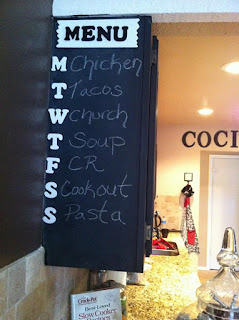 MENU
M Chicken
T Tacos
W church
T Soup
F CR
S Cookout
S Pasta
COCI
Crock-Pot
Best-Loved
Slow Cooker